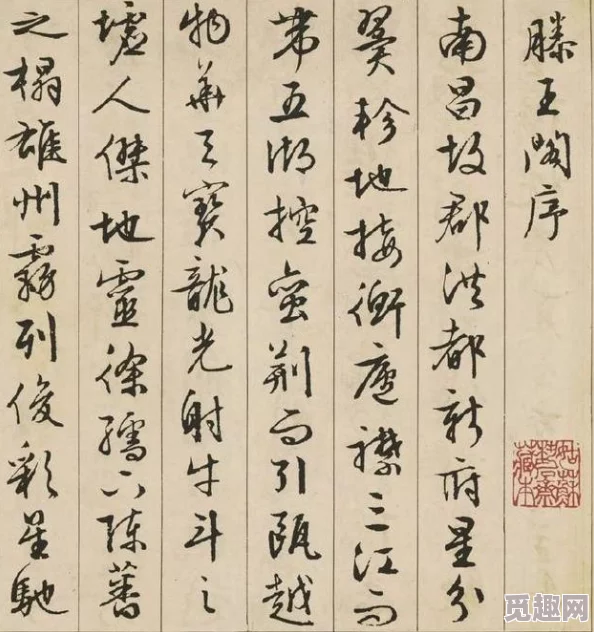 滕王閣序
南昌故郡洪都新府星分
翼軫地接衡廬襟三江而
帶五湖控蠻荊而引甌越
物華天寶龍光射牛斗之
墟人傑地靈徐孺下陳蕃
之榻雄州霧列俊彩星馳
觅趣网